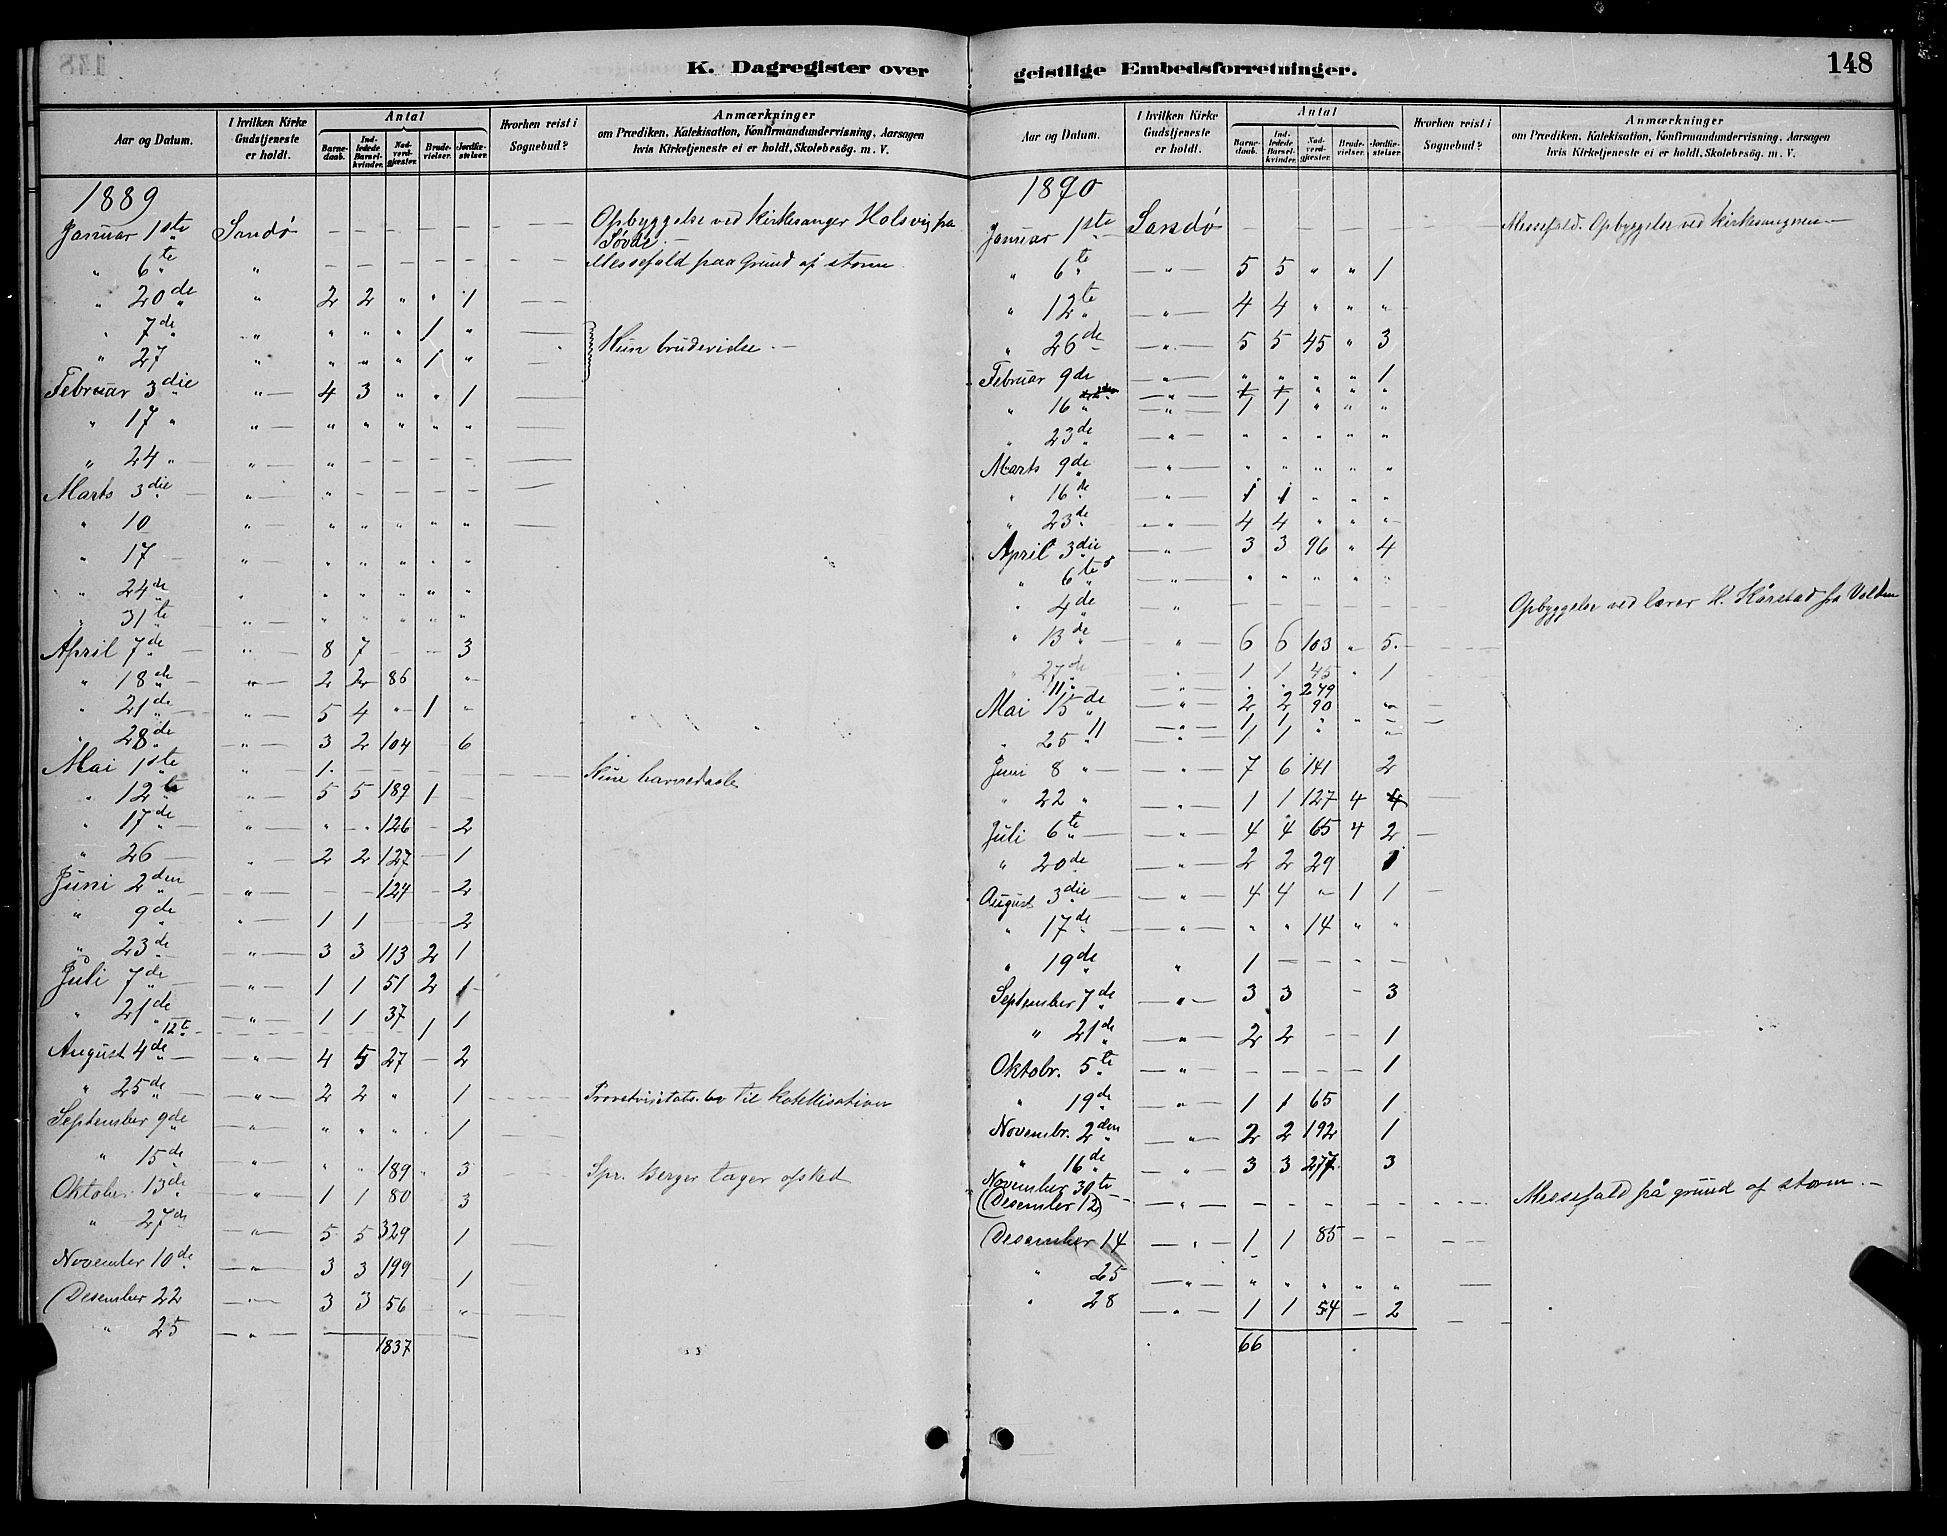 K. Dagregister over geistlige Embedsforretninger. 148
Aar og Datum. | I hvilken Kirke Gudstjeneste er holdt. | Antal | Barne-daab. | Ind-ledede Barsel-kvinder. | Nad-verd-gjester. | Brude-vielser. | Jordfæ-stelser. | Hvorhen reist i Sognebud? | Anmærkninger om Prædiken, Katekisation, Konfirmandundervisning, Aarsagen hvis Kirketjeneste ei er holdt, Skolebesøg. m. V.
1889
Januar 1ste Sandø — — — — — — Opbyggelse ved kirkesanger Holsvig fra
Søvde. —
" 6te " — — — — — — Messefald paa Grund af storm
" 20de " 2 2 " " 1 —
" 7de " " " " 1 " —
Kun brudevidse. —
" 27 " " " " 1 " —
Februar 3die " 4 3 " " 1 —
" 17 " " " " " " " —
" 24 " " " — — — — —
Marts 3die " " — — — — —
" 10 " " " " " " —
" 17 " " " " " "
" 24de " " " " " "
" 31te " " " " " "
April 7de " 8 7 — — 3
" 18de " 2 2 86 "
" 21de " 5 4 " 1 "
" 28de " 3 2 104 6
Mai 1ste " 1 — — — — — Kun barnedaab
" 12te " 5 5 189 1 —
" 17de " " " 126 — 2
" 26 " 2 2 127 — 1
Juni 2den " — — 124 2
" 9de " 1 1 2
" 23de " 3 3 113 2 1
Juli 7de " 1 1 51 2 1
" 21de " 1 1 37 1
12te — — — — 1
August 4de " 4 5 27 — 2
" 25de " 2 2 " 1 — Provstvisitats. til Katekisation
September 9de " " " " 1 —
" 15de " " " 189 " 3 — Spr. Berger tager afsked
Oktober 13de " 1 1 80 3
" 27de " 5 5 329 1
November 10de " 3 3 199 1
Desember 22 " 3 3 56 "
" 25 "
1837
Aar og Datum. | I hvilken Kirke Gudstjeneste er holdt. | Antal | Barne-daab. | Ind-ledede Barsel-kvinder. | Nad-verd-gjester. | Brude-vielser. | Jordfæ-stelser. | Hvorhen reist i Sognebud? | Anmærkninger om Prædiken, Katekisation, Konfirmandundervisning, Aarsagen hvis Kirketjeneste ei er holdt, Skolebesøg. m. V.
1890
Januar 1ste Sandø — — — — — — Messefald. Opbyggelse ved kirkesangeren —
" 6te " 5 5 " " 1
" 12te " 4 4 " " "
" 26de " 5 5 45 " 3
Februar 9de " " " " " 1
" 16 " 1 1 " " "
" 23de " " " " " "
Marts 9de " " " " " "
" 16de " 1 1 " " "
" 23de " 4 4 " " "
April 3die " 3 3 96 " 4
" 6te " " " " " "
" 4de " — — — — — Opbyggelse ved lærer K. Hårstad fra Volden
" 13de " 6 6 103 " 5.
" 27de " 1 1 45 1
" 11 " " " 249
Mai 15de " 2 2 90 "
" 25 " 1 1 " " "
Juni 8 " " 7 6 141 2
" 22 " " 1 1 127 4 4
Juli 6te " 4 4 65 4 2
" 20de " 2 2 29 1
August 3die " 4 4 " 1 1
" 17de " " " 14 " "
" 19de " 1 — — — —
September 7de " 3 3 — 3
" 21de " 2 2 — — 1
Oktobr. 5te " — — — — 1
" 19de " 1 1 65 1
Novembr. 2den " 2 2 192 1
" 16de " 3 3 277 3
November 30te
(Desember 12) " — — — — — Messefald på grund af storm. —
Desember 14 " 1 1 85 — —
" 25 " " " " " "
" 28 " 1 1 54 — 2
66